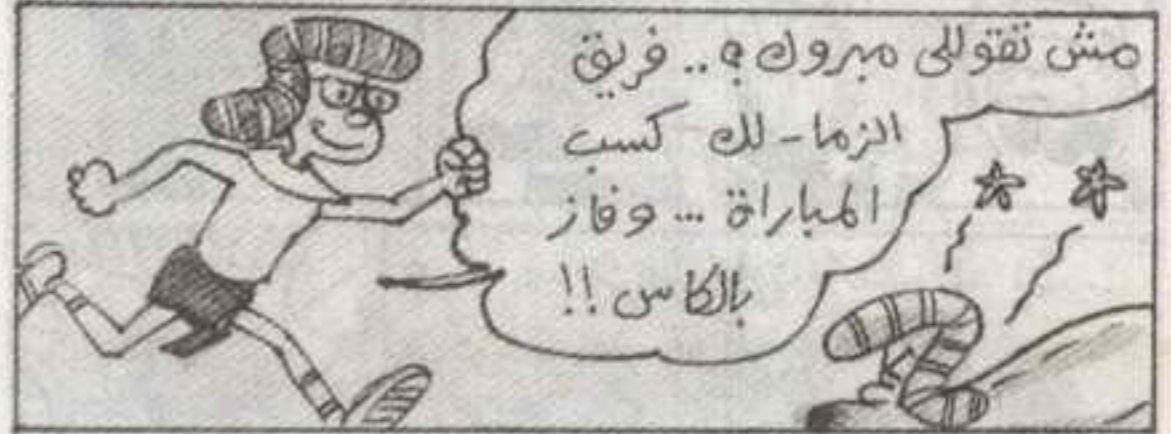 مش تقوللى مبروك ؟ .. فريق
الزما - لك كسب
المباراة ... وفاز
بالكاس !!